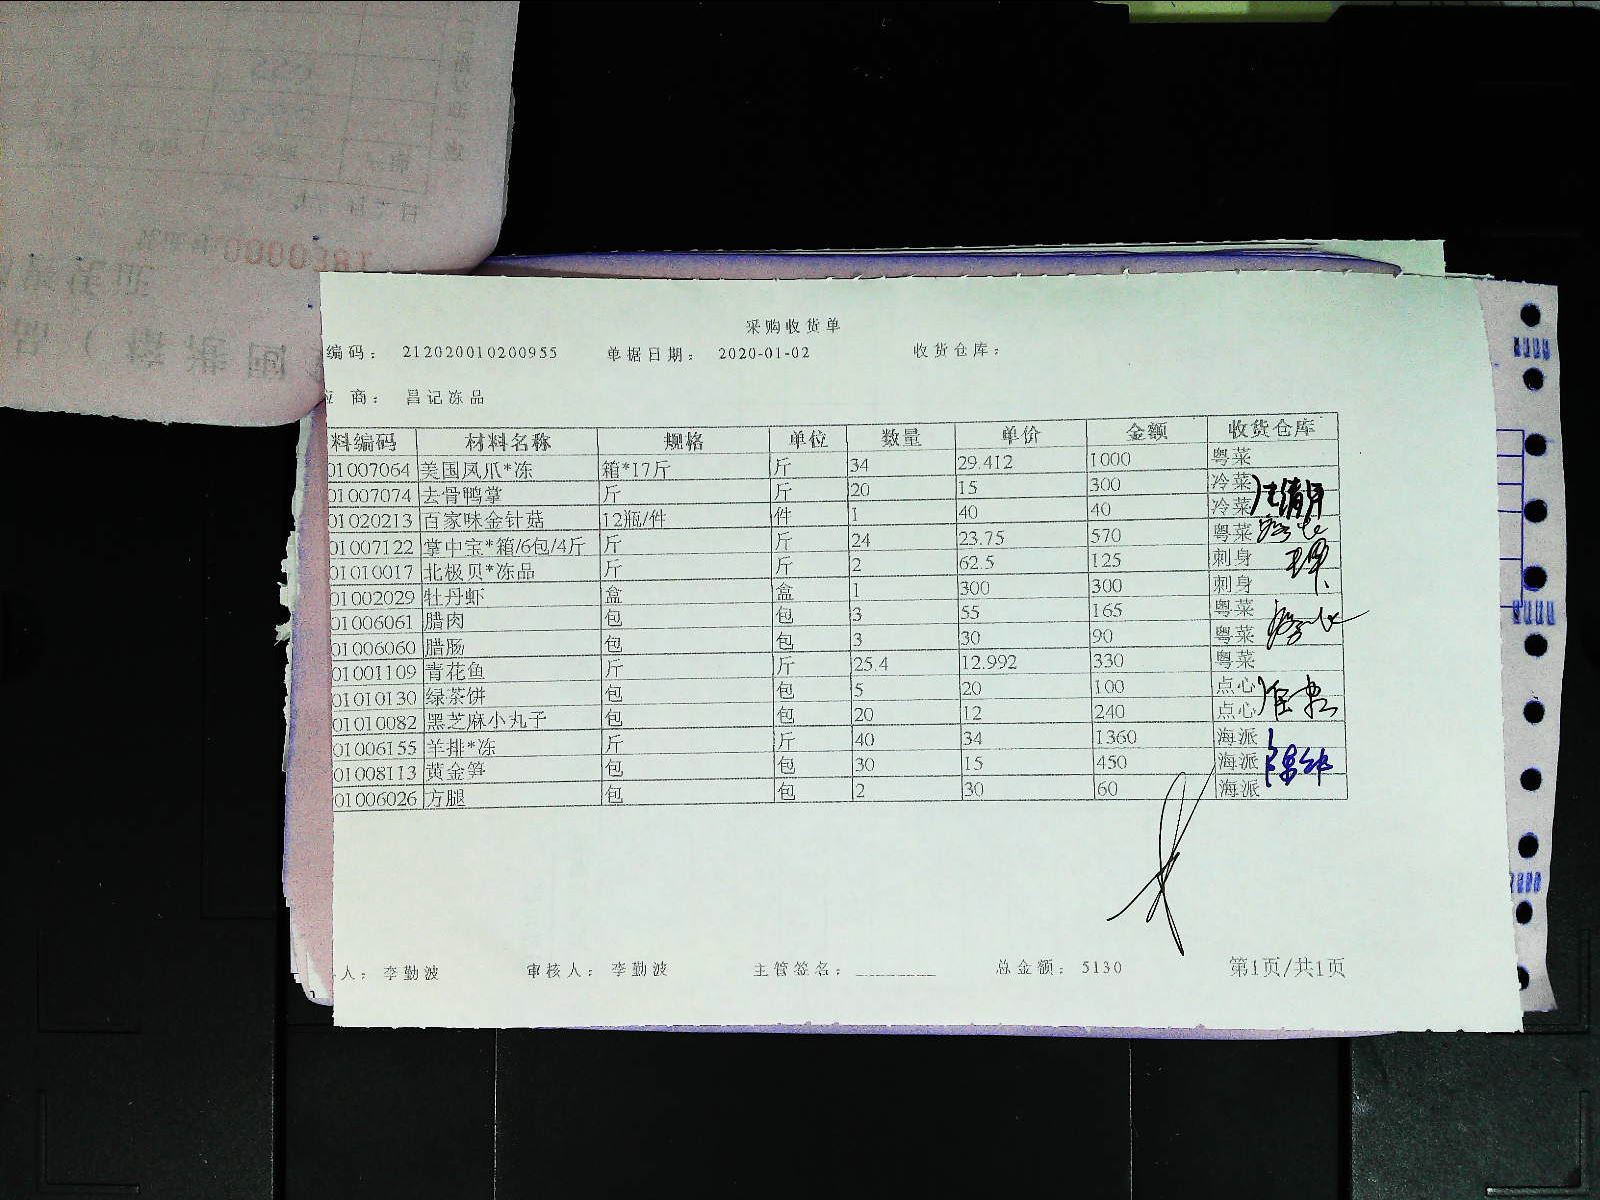 采购收货单
编码： 212020010200955 单据日期： 2020-01-02 收货仓库：
商： 昌记冻品
料编码 材料名称 规格 单位 数量 单价 金额 收货仓库
01007064 美国凤爪*冻 箱*17斤 斤 34 29.412 1000 粤菜
01007074 去骨鸭掌 斤 斤 20 15 300 冷菜
01020213 百家味金针菇 12瓶/件 件 1 40 40 冷菜
01007122 掌中宝*箱/6包/4斤 斤 斤 24 23.75 570 粤菜
01010017 北极贝*冻品 斤 斤 2 62.5 125 刺身
01002029 牡丹虾 盒 盒 1 300 300 刺身
01006061 腊肉 包 包 3 55 165 粤菜
01006060 腊肠 包 包 3 30 90 粤菜
01001109 青花鱼 斤 斤 25.4 12.992 330 粤菜
01010130 绿茶饼 包 包 5 20 100 点心
01010082 黑芝麻小丸子 包 包 20 12 240 点心
01006155 羊排*冻 斤 斤 40 34 1360 海派
01008113 黄金笋 包 包 30 15 450 海派
01006026 方腿 包 包 2 30 60 海派
人： 李勤波 审核人： 李勤波 主管签名： 总金额： 5130 第1页/共1页